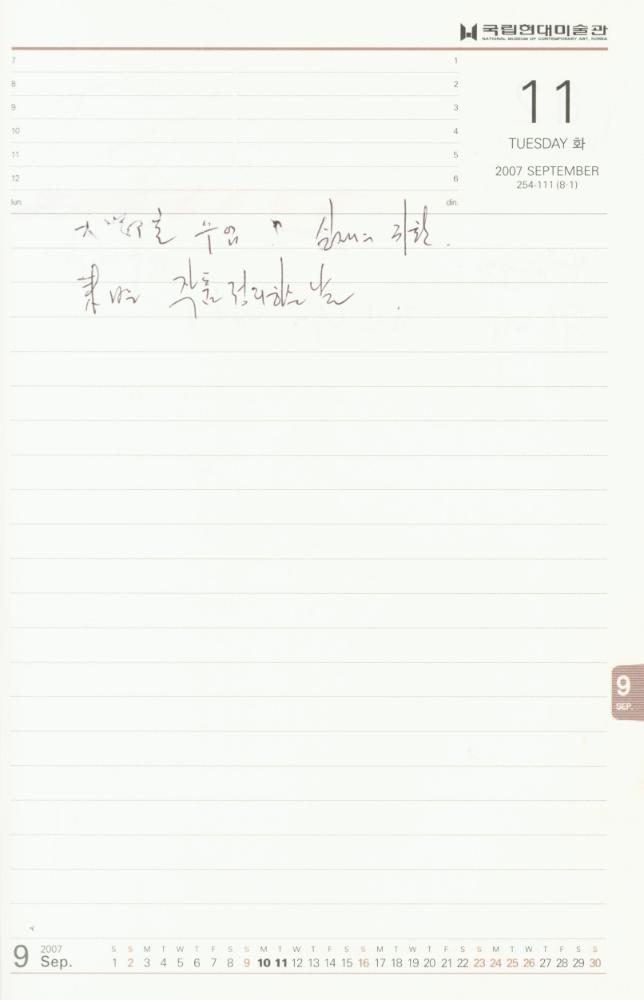 국립현대미술관
NATIONAL MUSEUM OF CONTEMPORARY ART, KOREA
7 1
8 2
9 3
10 4
11 5
12 6
lun. din.
11
TUESDAY 화
2007 SEPTEMBER
254-111 (8·1)
수업
작품 정리하는 날
9
SEP.
9 2007 Sep.
S S M T W T F S S M T W T F S S M T W T F S S M T W T F S S
1 2 3 4 5 6 7 8 9 10 11 12 13 14 15 16 17 18 19 20 21 22 23 24 25 26 27 28 29 30